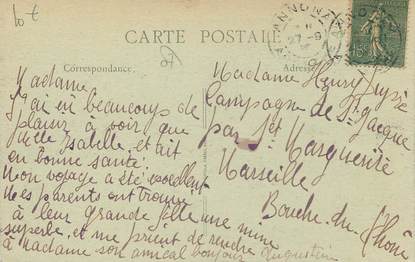 10 t
ANNONA
27 - 9
CARTE POSTALE
07
Correspondance.
Adresse
Madame
J'ai eu beaucoups de
plaisir à voir que
Melle Isabelle, etait
en bonne santé.
Mon voyage a été excellent
Mes parents ont trouvé
à leur grande fille une mine
superbe, et me prient de rendre
à Madame son amical bonjour
Augustine
Madame Henry
Campagne de St Jacque
par Ste Marguerite
Marseille
Bouche-du-Rhône